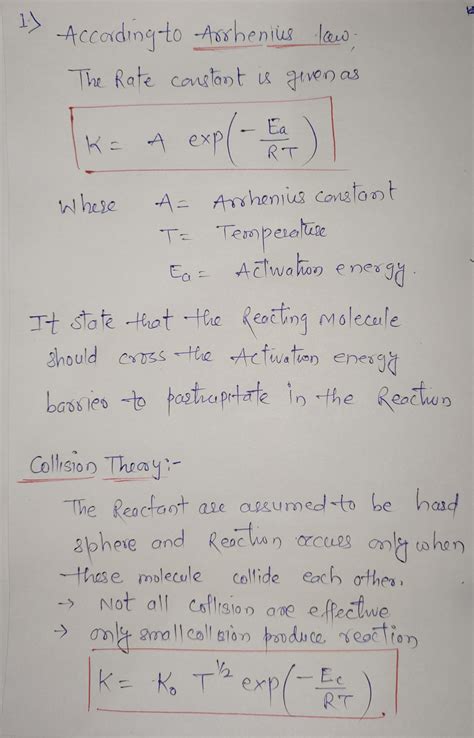 1) According to Arrhenius law,
The Rate constant is given as
K = A exp(- Ea/RT)
Where A = Arrhenius constant
T = Temperature
Ea = Activation energy.
It state that the Reacting Molecule
should cross the Activation energy
barrier to partrupitate in the Reaction
Collision Theory:-
The Reactant are assumed to be hard
sphere and Reaction occurs only when
these molecule collide each other.
→ Not all collision are effective
→ only small collision produce reaction
K = K₀ T^1/2 exp(- Ec/RT).